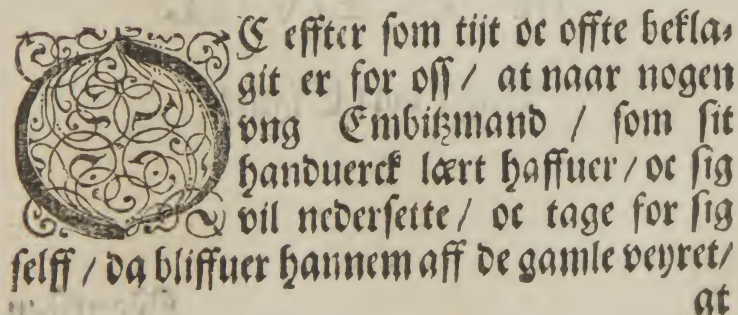 OC effter som tijt oc offte bekla-
git er for oss / at naar nogen
vng Embitzmand / som sit
handuerck lært haffuer / oc sig
vil nedersette / oc tage for sig
selff / da bliffuer hannem aff de gamle veyret /
at